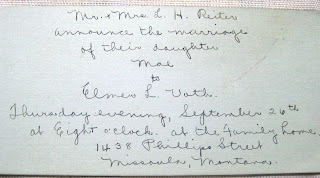 Mr. & Mrs. L. H. Reiter
announce the marriage
of their daughter
Mae
to
Elmer L. Voth.
Thursday evening, September 26th
at Eight o'clock. at the family home.
1438 Phillips Street
Missoula, Montana.